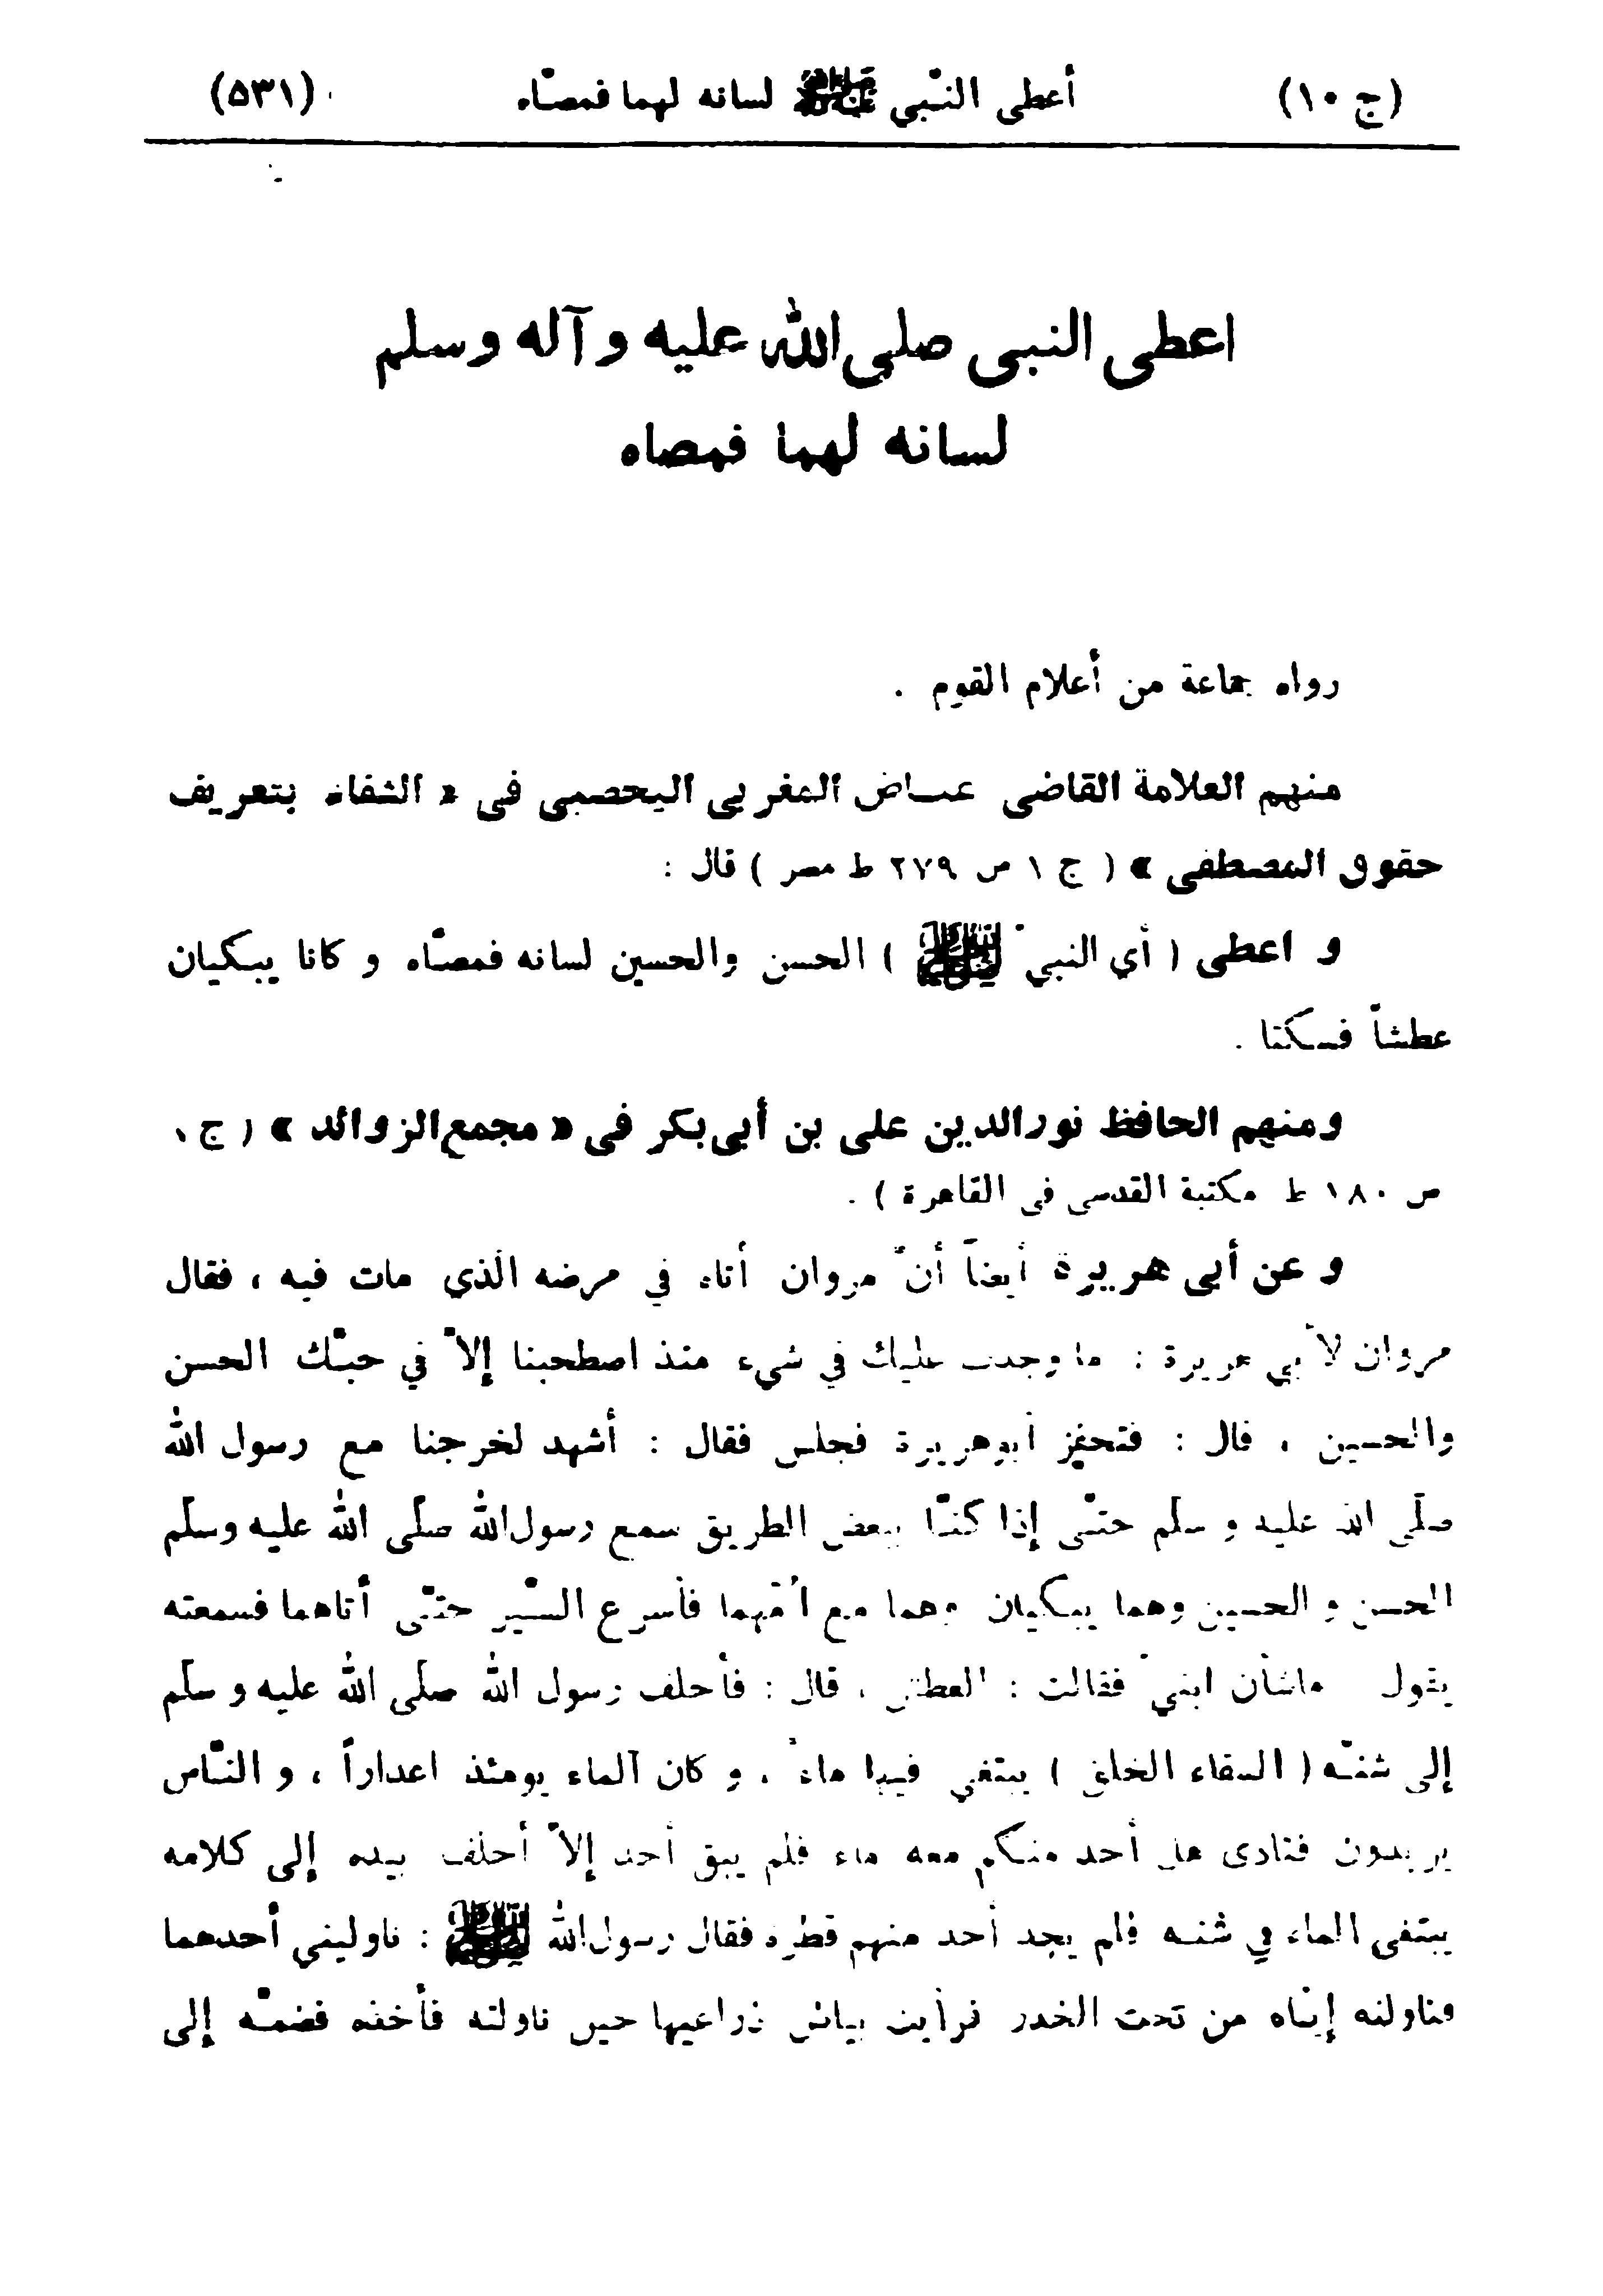 (ج ١٠) أعطى النّبي ﷺ لسانه لهما فمصّاه (٥٣١)
اعطى النبى صلى الله عليه وآله وسلم
لسانه لهما فمصاه
رواه جماعة من أعلام القوم .
منهم العلامة القاضى عياض المغربى اليحصبى فى « الشفاء بتعريف
حقوق المصطفى » ( ج ١ ص ٢٧٩ ط مصر ) قال :
و اعطى ( أي النبيّ ) الحسن والحسين لسانه فمصّاه و كانا يبكيان
عطشاً فسكتا .
ومنهم الحافظ نورالدين على بن أبى بكر فى « مجمع الزوائد » ( ج
ص ١٨٠ ط مكتبة القدسى فى القاهرة ) .
و عن أبى هريرة أيضاً أنّ مروان أتاه في مرضه الّذي مات فيه ، فقال
مروان لأبي هريرة : ما وجدت عليك في شيء منذ اصطحبنا إلاّ في حبّك الحسن
والحسين ، قال : فتحفز أبوهريرة فجلس فقال : أشهد لخرجنا مع رسول الله
صلّى الله عليه و سلّم حتّى إذا كنّا ببعض الطريق سمع رسول الله صلّى الله عليه وسلّم
الحسن و الحسين وهما يبكيان وهما مع اُمّهما فأسرع السّير حتّى أتاهما فسمعته
يقول ماشأن ابنيّ فقالت : العطش ، قال : فأخلف رسول الله صلّى الله عليه و سلّم
إلى شنّه ( السقاء الخلق ) يبتغي فيها ماءً ، و كان الماء يومئذ اعداراً ، و النّاس
يريدون فنادى هل أحد منكم معه ماء فلم يبق أحد إلاّ أخلف بيده إلى كلامه
يبتغى الماء في شنه فلم يجد أحد منهم قطرة فقال رسول الله : ناوليني أحدهما
فناولته إيّاه من تحت الخدر فرأيت بياض ذراعيها حين ناولته فأخذه فضمّه إلى